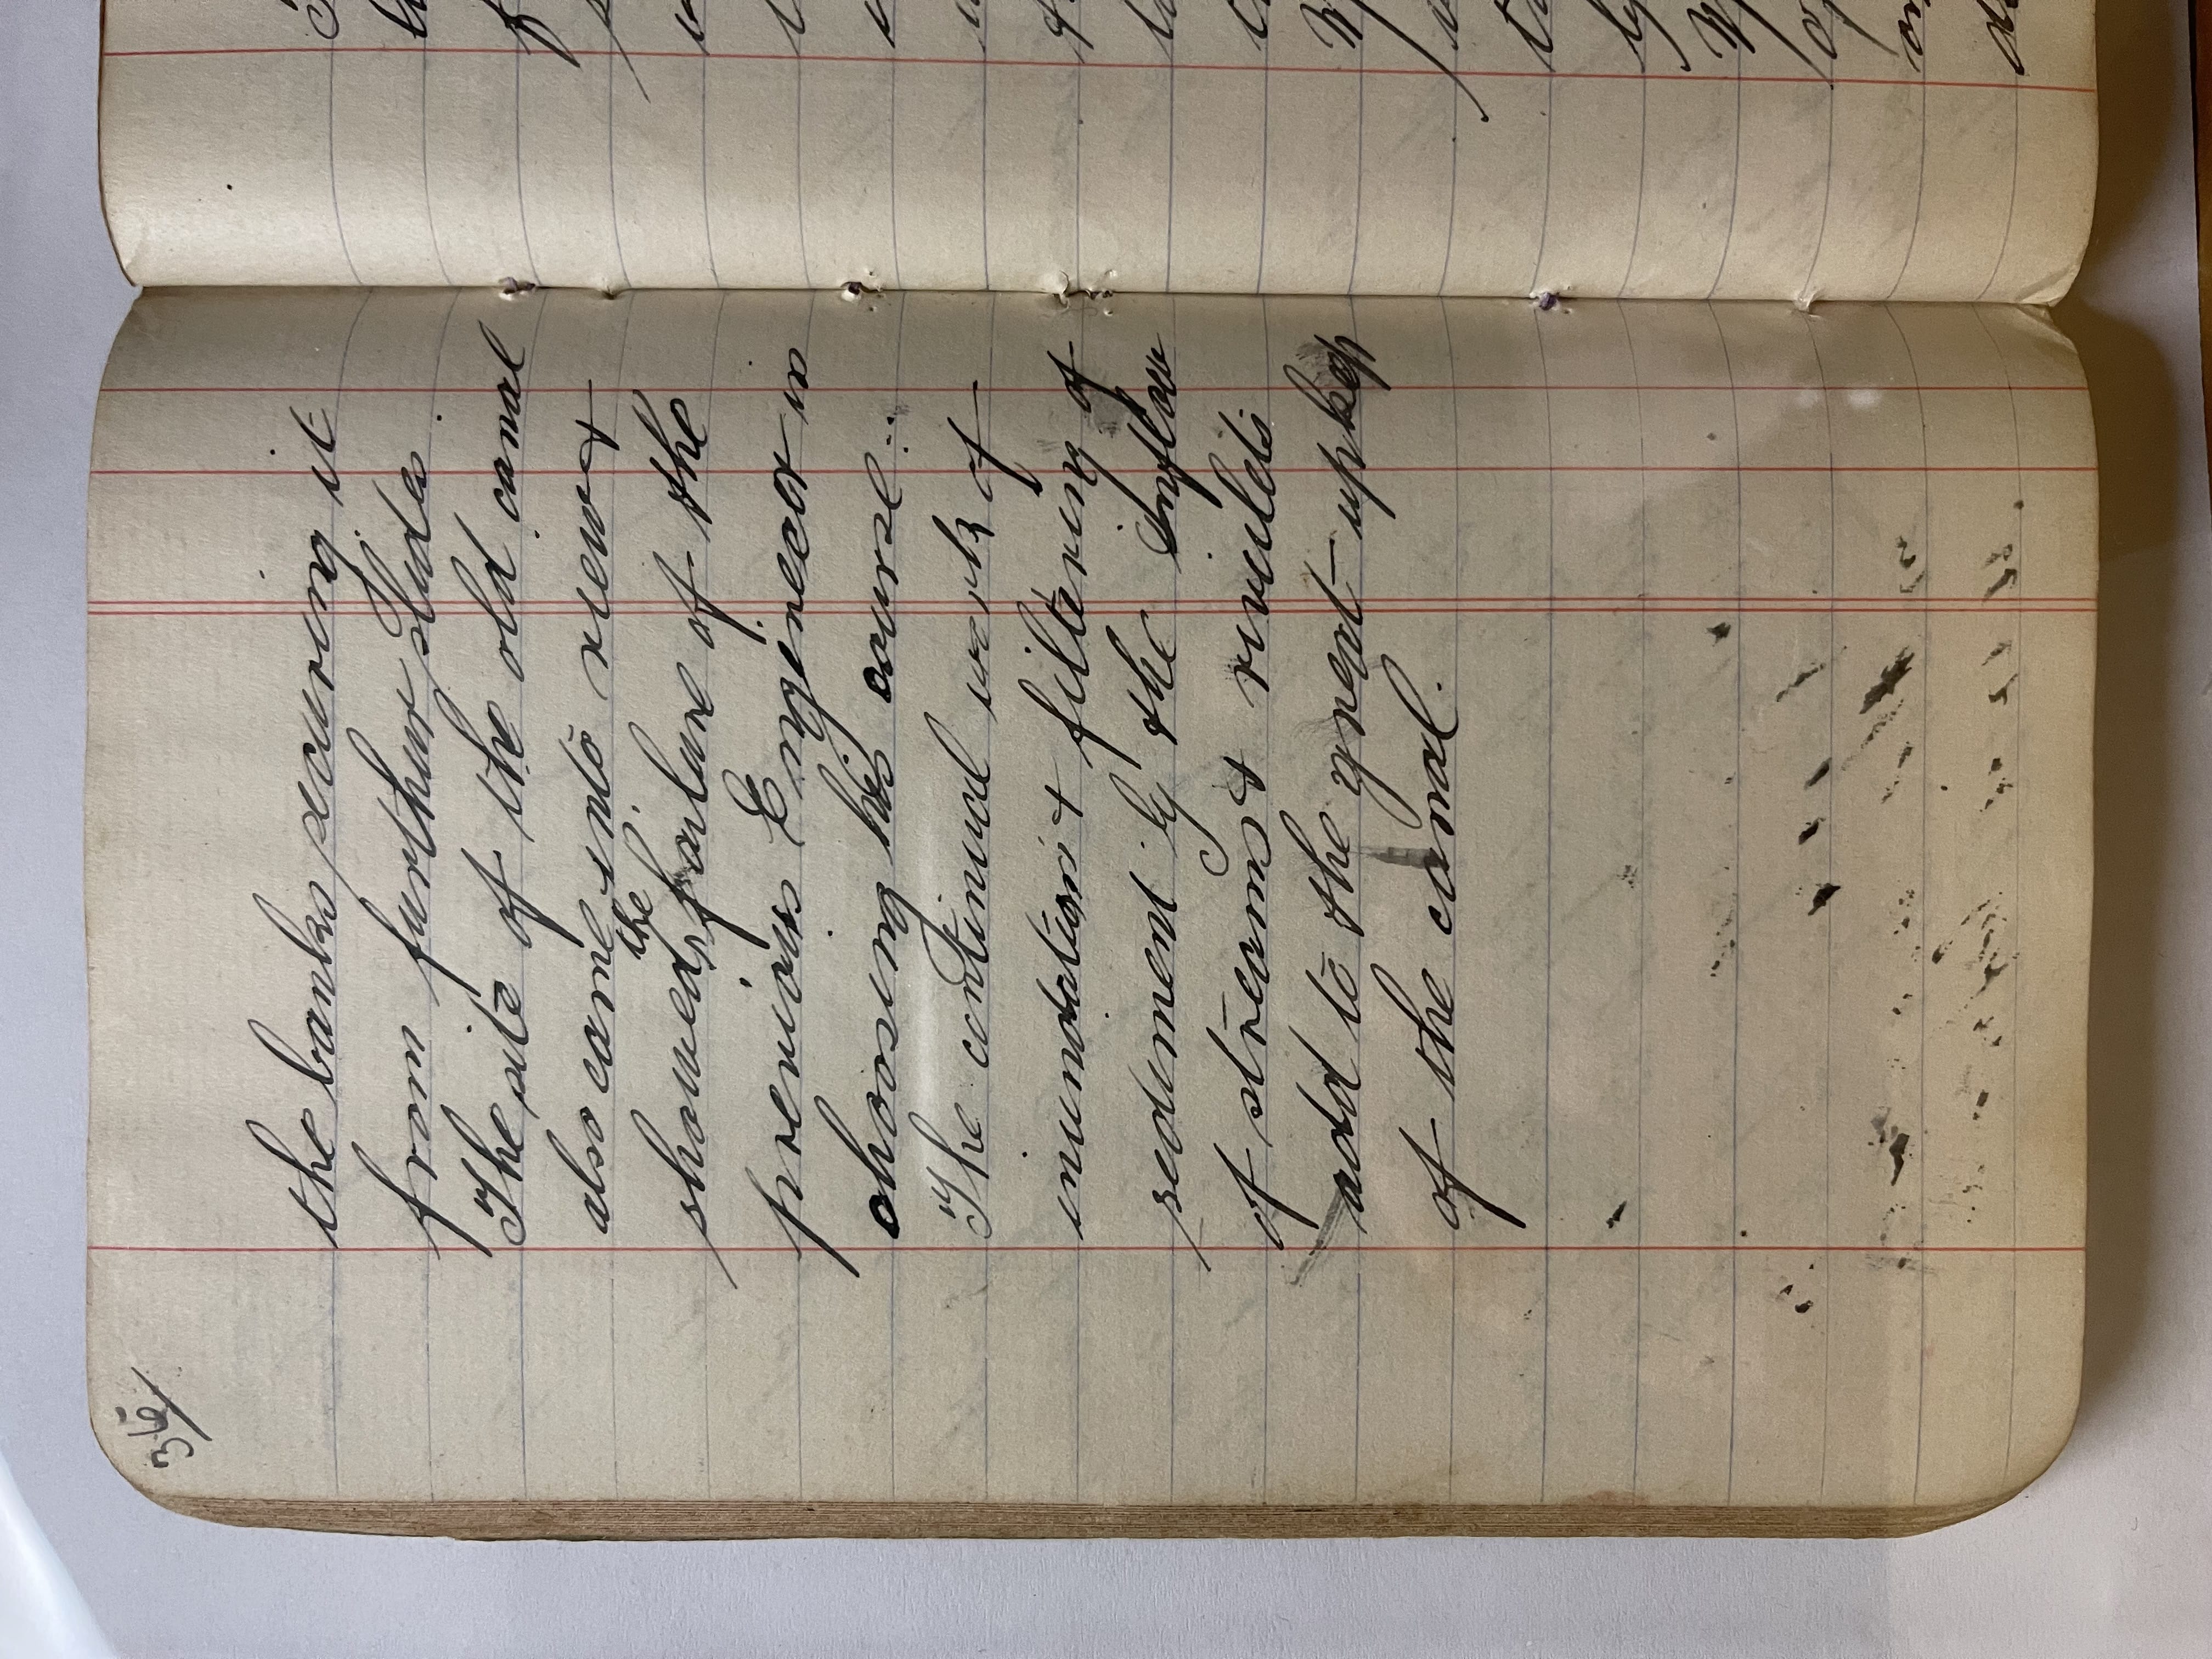 36
the banks securing it
from furthur slides
The site of the old canal
also came into view &
showed the failure of the
previous Engineer in
choosing his course.
The continual work of
inundation & filtering of
sediment by the Inflow
of streams & rivulets
add to the great upkep
of the canal.